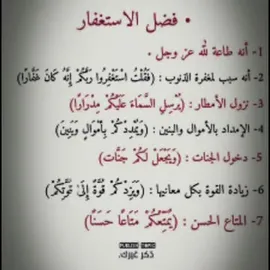 • فضل الاستغفار
1- أنه طاعة لله عز وجل .
2- أنه سبب لمغفرة الذنوب : (فَقُلْتُ اسْتَغْفِرُوا رَبَّكُمْ إِنَّهُ كَانَ غَفَّارًا)
3- نزول الأمطار : (يُرْسِلِ السَّمَاءَ عَلَيْكُمْ مِدْرَارًا)
4- الإمداد بالأموال والبنين : (وَيُمْدِدْكُمْ بِأَمْوَالٍ وَبَنِينَ)
5- دخول الجنات : (وَيَجْعَلْ لَكُمْ جَنَّاتٍ)
6- زيادة القوة بكل معانيها : (وَيَزِدْكُمْ قُوَّةً إِلَىٰ قُوَّتِكُمْ)
7- المتاع الحسن : (يُمَتِّعْكُمْ مَتَاعًا حَسَنًا)
ذكر غيرك.